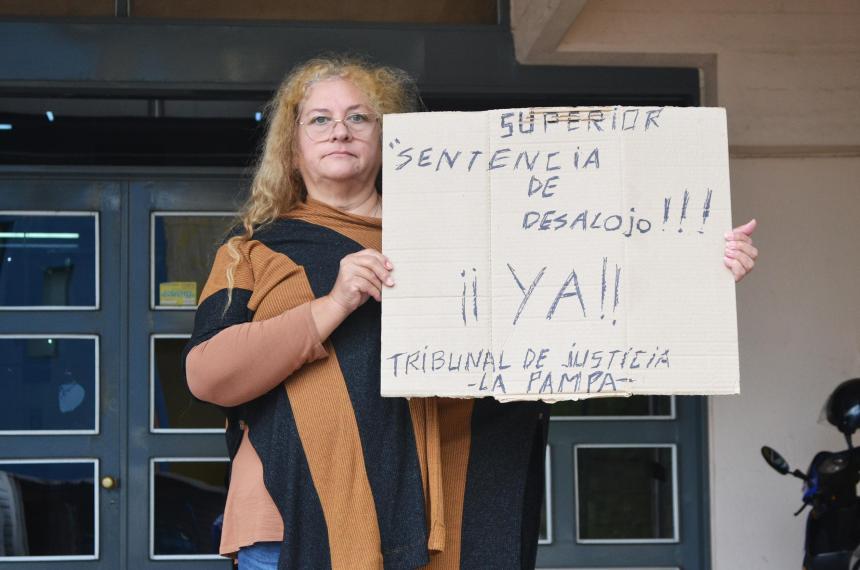 SUPERIOR
"SENTENCIA
DE
DESALOJO!!!
¡¡ YA!!
TRIBUNAL DE JUSTICIA
-LA PAMPA-